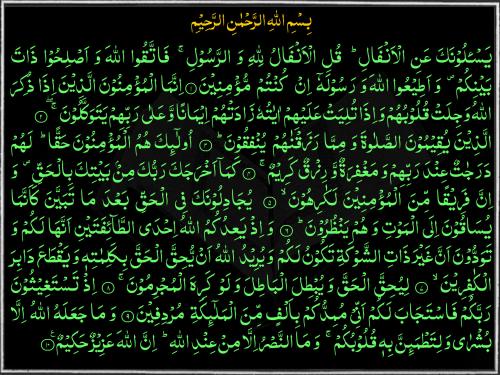 بِسْمِ اللهِ الرَّحْمٰنِ الرَّحِيْمِ
يَسْـَٔلُوْنَكَ عَنِ الْاَنْفَالِ ؕ قُلِ الْاَنْفَالُ لِلّٰهِ وَ الرَّسُوْلِ ۚ فَاتَّقُوا اللهَ وَ اَصْلِحُوْا ذَاتَ
بَيْنِكُمْ ۪ وَ اَطِيْعُوا اللهَ وَ رَسُوْلَهٗۤ اِنْ كُنْتُمْ مُّؤْمِنِيْنَ ﴿۱﴾ اِنَّمَا الْمُؤْمِنُوْنَ الَّذِيْنَ اِذَا ذُكِرَ
اللهُ وَجِلَتْ قُلُوْبُهُمْ وَ اِذَا تُلِيَتْ عَلَيْهِمْ اٰيٰتُهٗ زَادَتْهُمْ اِيْمَانًا وَّ عَلٰى رَبِّهِمْ يَتَوَكَّلُوْنَ ﴿۲﴾ۚۖ
الَّذِيْنَ يُقِيْمُوْنَ الصَّلٰوةَ وَ مِمَّا رَزَقْنٰهُمْ يُنْفِقُوْنَ ؕ﴿۳﴾ اُولٰٓئِكَ هُمُ الْمُؤْمِنُوْنَ حَقًّا ؕ لَهُمْ
دَرَجٰتٌ عِنْدَ رَبِّهِمْ وَ مَغْفِرَةٌ وَّ رِزْقٌ كَرِيْمٌ ۚ﴿۴﴾ كَمَاۤ اَخْرَجَكَ رَبُّكَ مِنْۢ بَيْتِكَ بِالْحَقِّ ۪ وَ
اِنَّ فَرِيْقًا مِّنَ الْمُؤْمِنِيْنَ لَكٰرِهُوْنَ ۙ﴿۵﴾ يُجَادِلُوْنَكَ فِى الْحَقِّ بَعْدَ مَا تَبَيَّنَ كَاَنَّمَا
يُسَاقُوْنَ اِلَى الْمَوْتِ وَ هُمْ يَنْظُرُوْنَ ؕ﴿۶﴾ وَ اِذْ يَعِدُكُمُ اللهُ اِحْدَى الطَّآئِفَتَيْنِ اَنَّهَا لَكُمْ وَ
تَوَدُّوْنَ اَنَّ غَيْرَ ذَاتِ الشَّوْكَةِ تَكُوْنُ لَكُمْ وَ يُرِيْدُ اللهُ اَنْ يُّحِقَّ الْحَقَّ بِكَلِمٰتِهٖ وَ يَقْطَعَ دَابِرَ
الْكٰفِرِيْنَ ۙ﴿۷﴾ لِيُحِقَّ الْحَقَّ وَ يُبْطِلَ الْبَاطِلَ وَ لَوْ كَرِهَ الْمُجْرِمُوْنَ ۚ﴿۸﴾ اِذْ تَسْتَغِيْثُوْنَ
رَبَّكُمْ فَاسْتَجَابَ لَكُمْ اَنِّىْ مُمِدُّكُمْ بِاَلْفٍ مِّنَ الْمَلٰٓئِكَةِ مُرْدِفِيْنَ ﴿۹﴾ وَ مَا جَعَلَهُ اللهُ اِلَّا
بُشْرٰى وَ لِتَطْمَئِنَّ بِهٖ قُلُوْبُكُمْ ۚ وَ مَا النَّصْرُ اِلَّا مِنْ عِنْدِ اللهِ ؕ اِنَّ اللهَ عَزِيْزٌ حَكِيْمٌ ﴿۱۰﴾